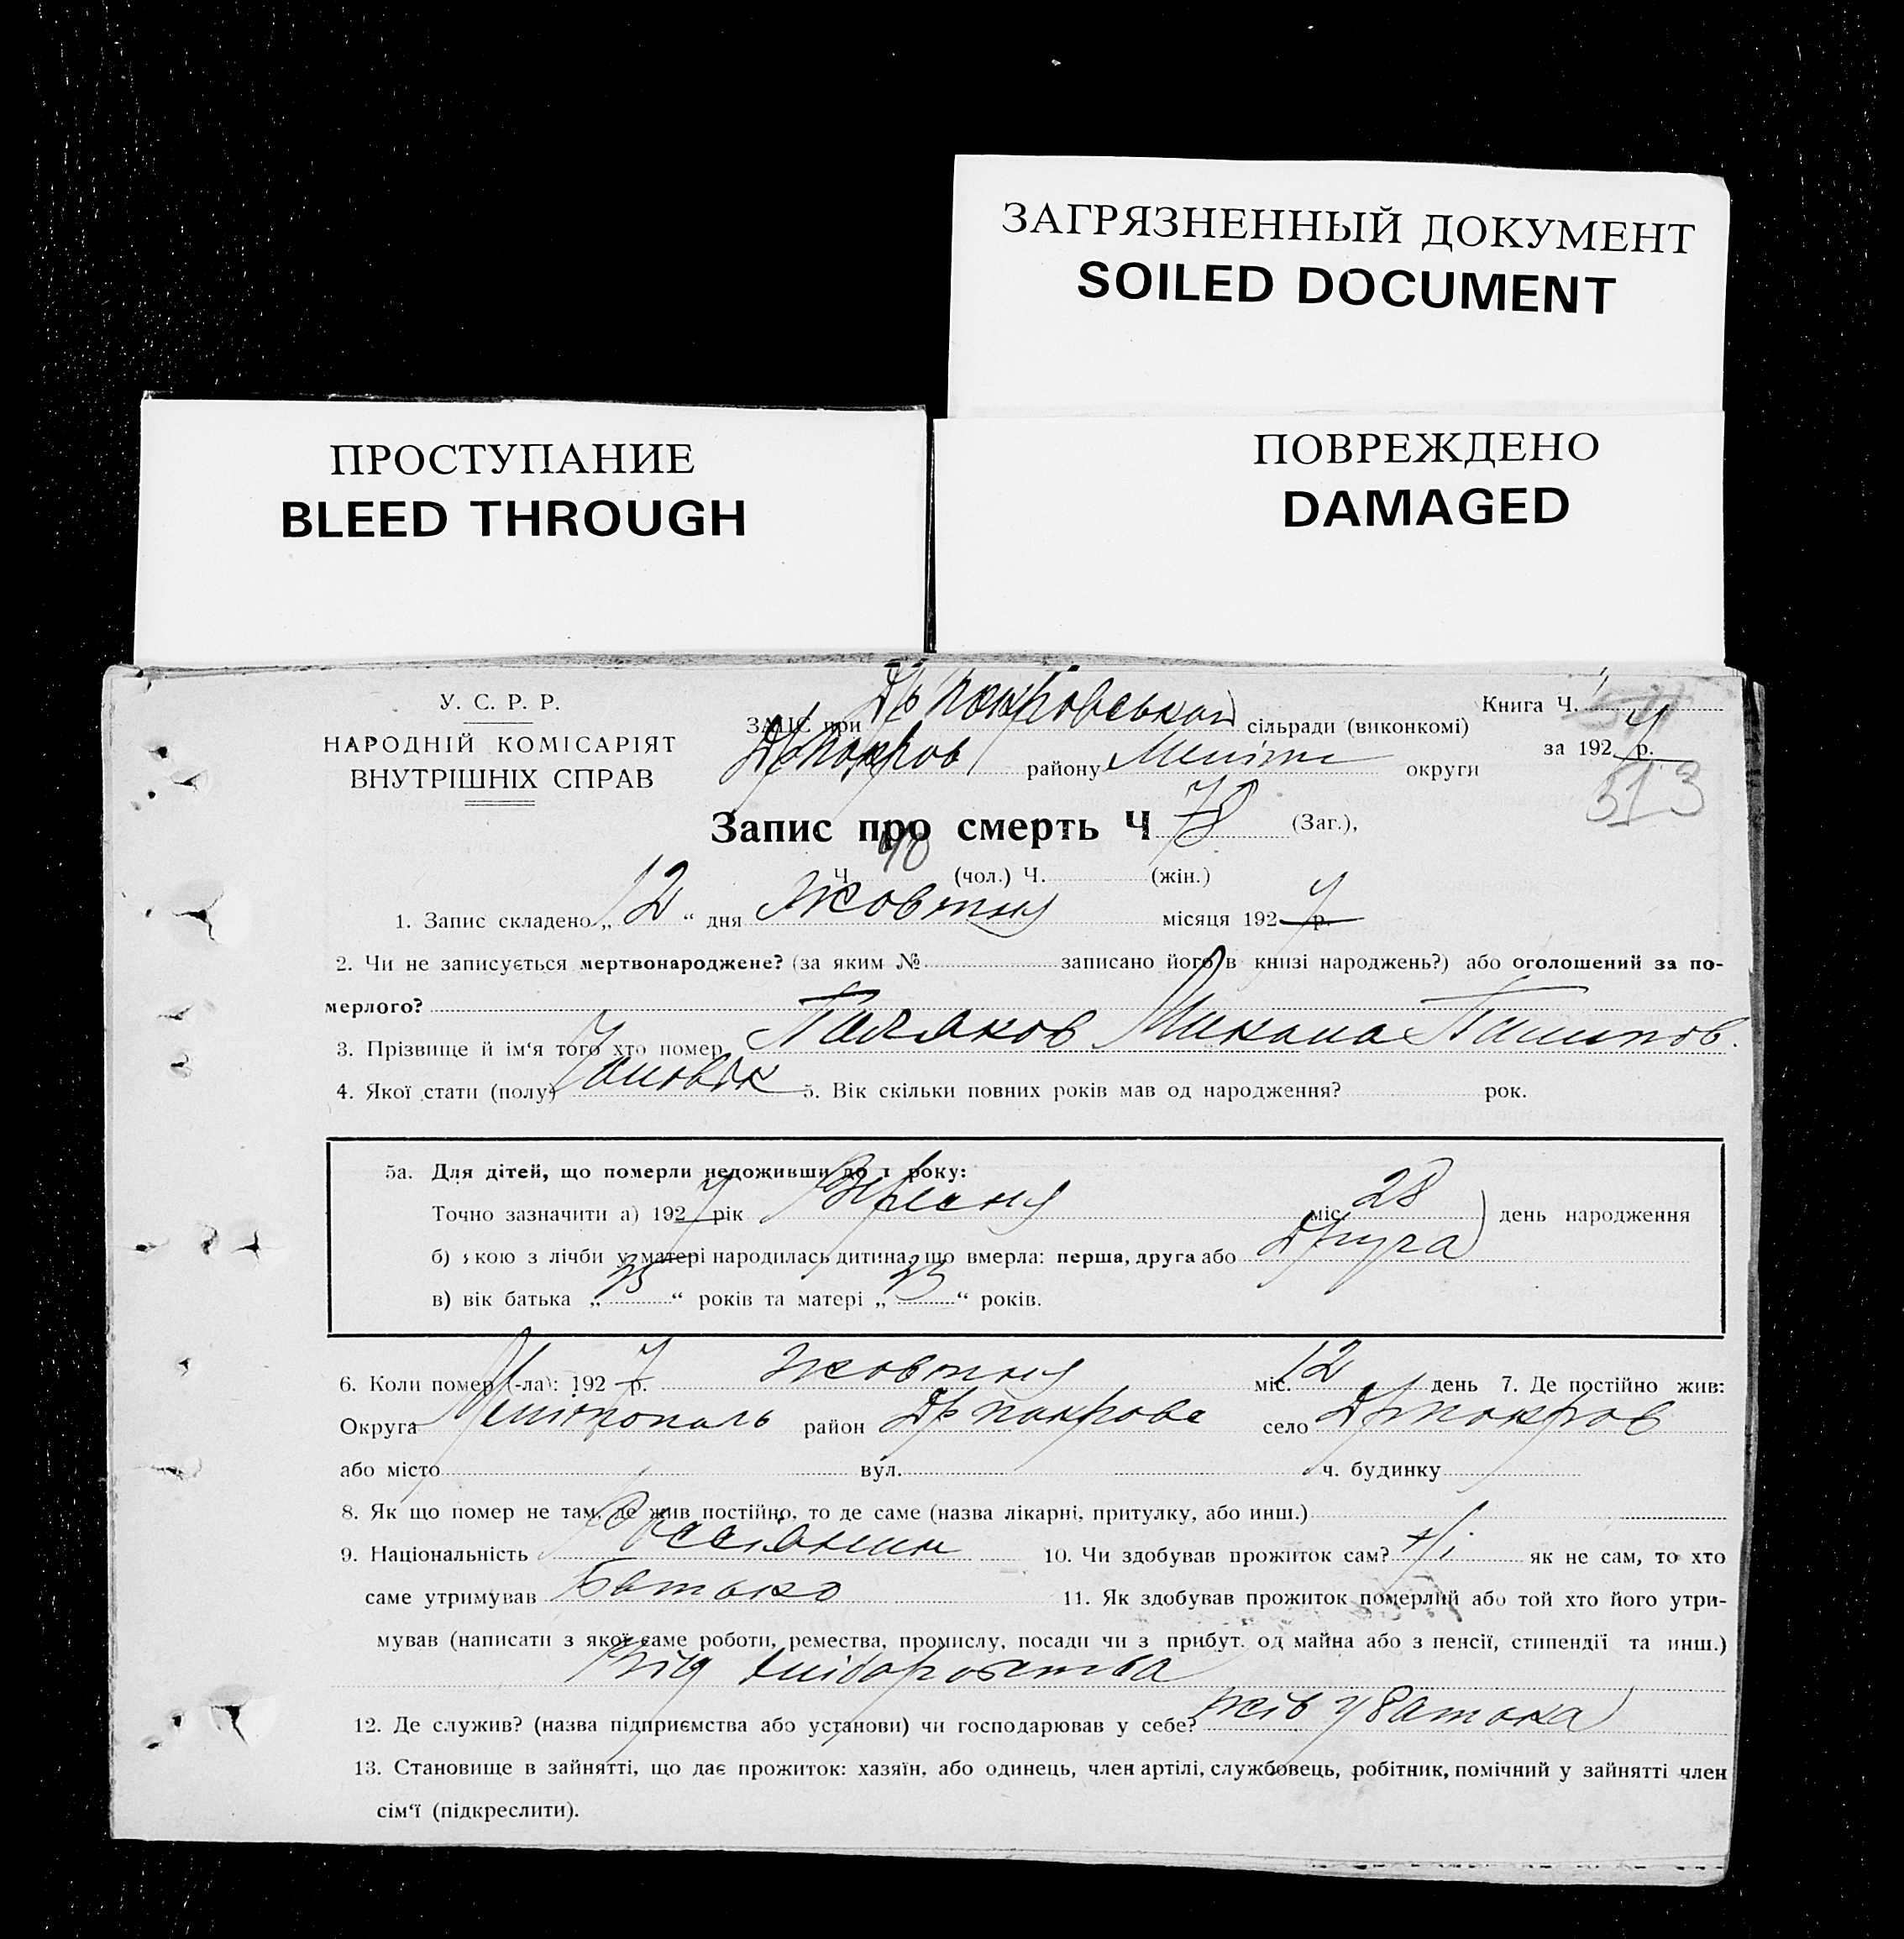 ЗАГРЯЗНЕННЫЙ ДОКУМЕНТ
SOILED DOCUMENT
ПРОСТУПАНИЕ
BLEED THROUGH
ПОВРЕЖДЕНО
DAMAGED
У. С. Р. Р.
НАРОДНІЙ КОМІСАРІЯТ
ВНУТРІШНІХ СПРАВ
ЗАГС при сільради (виконкомі)
району округи
Книга Ч.
за 1927 р.
513
Запис про смерть Ч 78 (Заг.),
Ч. 48 (чол.) Ч. (жін.)
1. Запис складено „12“ дня Жовтня місяця 1927 р.
2. Чи не записується мертвонароджене? (за яким № записано його в книзі народжень?) або оголошений за по-
мерлого?
3. Прізвище й ім‘я того хто помер
4. Якої стати (полу) Чоловік 5. Вік скільки повних років мав од народження? рок.
5а. Для дітей, що померли недоживши до 1 року:
Точно зазначити а) 1927 рік Вересня міс. 28 день народження
б) якою з лічби у матері народилась дитина, що вмерла: перша, друга або Друга
в) вік батька „ “ років та матері „23“ років.
6. Коли помер (-ла): 1927 р. Жовтня міс. 12 день 7. Де постійно жив:
Округа Меліτополь район село
або місто вул. ч. будинку
8. Як що помер не там, де жив постійно, то де саме (назва лікарні, притулку, або инш.)
9. Національність 10. Чи здобував прожиток сам? Ні як не сам, то хто
саме утримував Батько 11. Як здобував прожиток померлий або той хто його утри-
мував (написати з якої саме роботи, ремества, промислу, посади чи з прибут. од майна або з пенсії, стипендії та инш.)
Від хліборобства
12. Де служив? (назва підприємства або установи) чи господарював у себе? жів у батька
13. Становище в зайнятті, що дає прожиток: хазяїн, або одинець, член артілі, службовець, робітник, помічний у зайнятті член
сім‘ї (підкреслити).